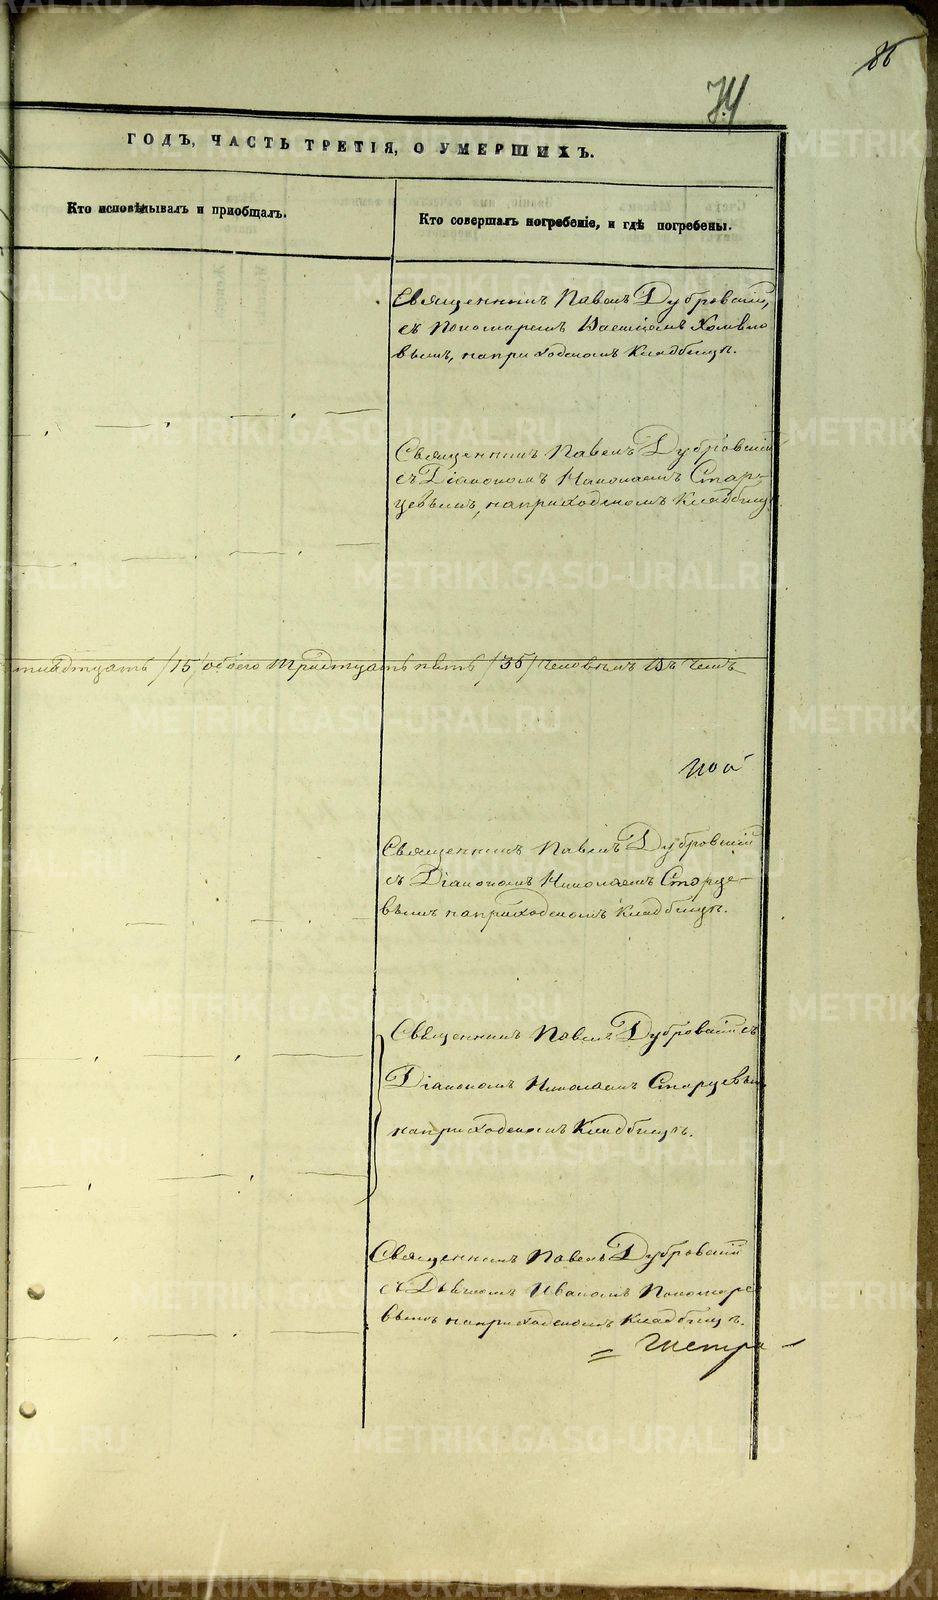 86
74
ГОДЪ, ЧАСТЬ ТРЕТІЯ, О УМЕРШИХЪ.
Кто исповѣдывалъ и пріобщалъ.
Кто совершалъ погребеніе, и гдѣ погребены.
Священникъ Павелъ Дубровскій,
съ Пономаремъ
вымъ, на приходскомъ Кладбищѣ.
Священникъ Павелъ Дубровскій
съ Діакономъ Николаемъ Стар-
цевымъ, на приходскомъ Кладбищѣ
/15/ обоего тридцать пять /35/ человѣкъ Въ чемъ
Священникъ Павелъ Дубровскій
съ Діакономъ Николаемъ Старце-
вымъ на приходскомъ Кладбищѣ.
Священникъ Павелъ Дубровскій съ
Діакономъ Николаемъ Старцевымъ
на приходскомъ Кладбищѣ.
Священникъ Павелъ Дубровскій
съ Дьячкомъ Иваномъ Пономаре
вымъ на приходскомъ Кладбищѣ.
METRIKI.GASO-URAL.RU